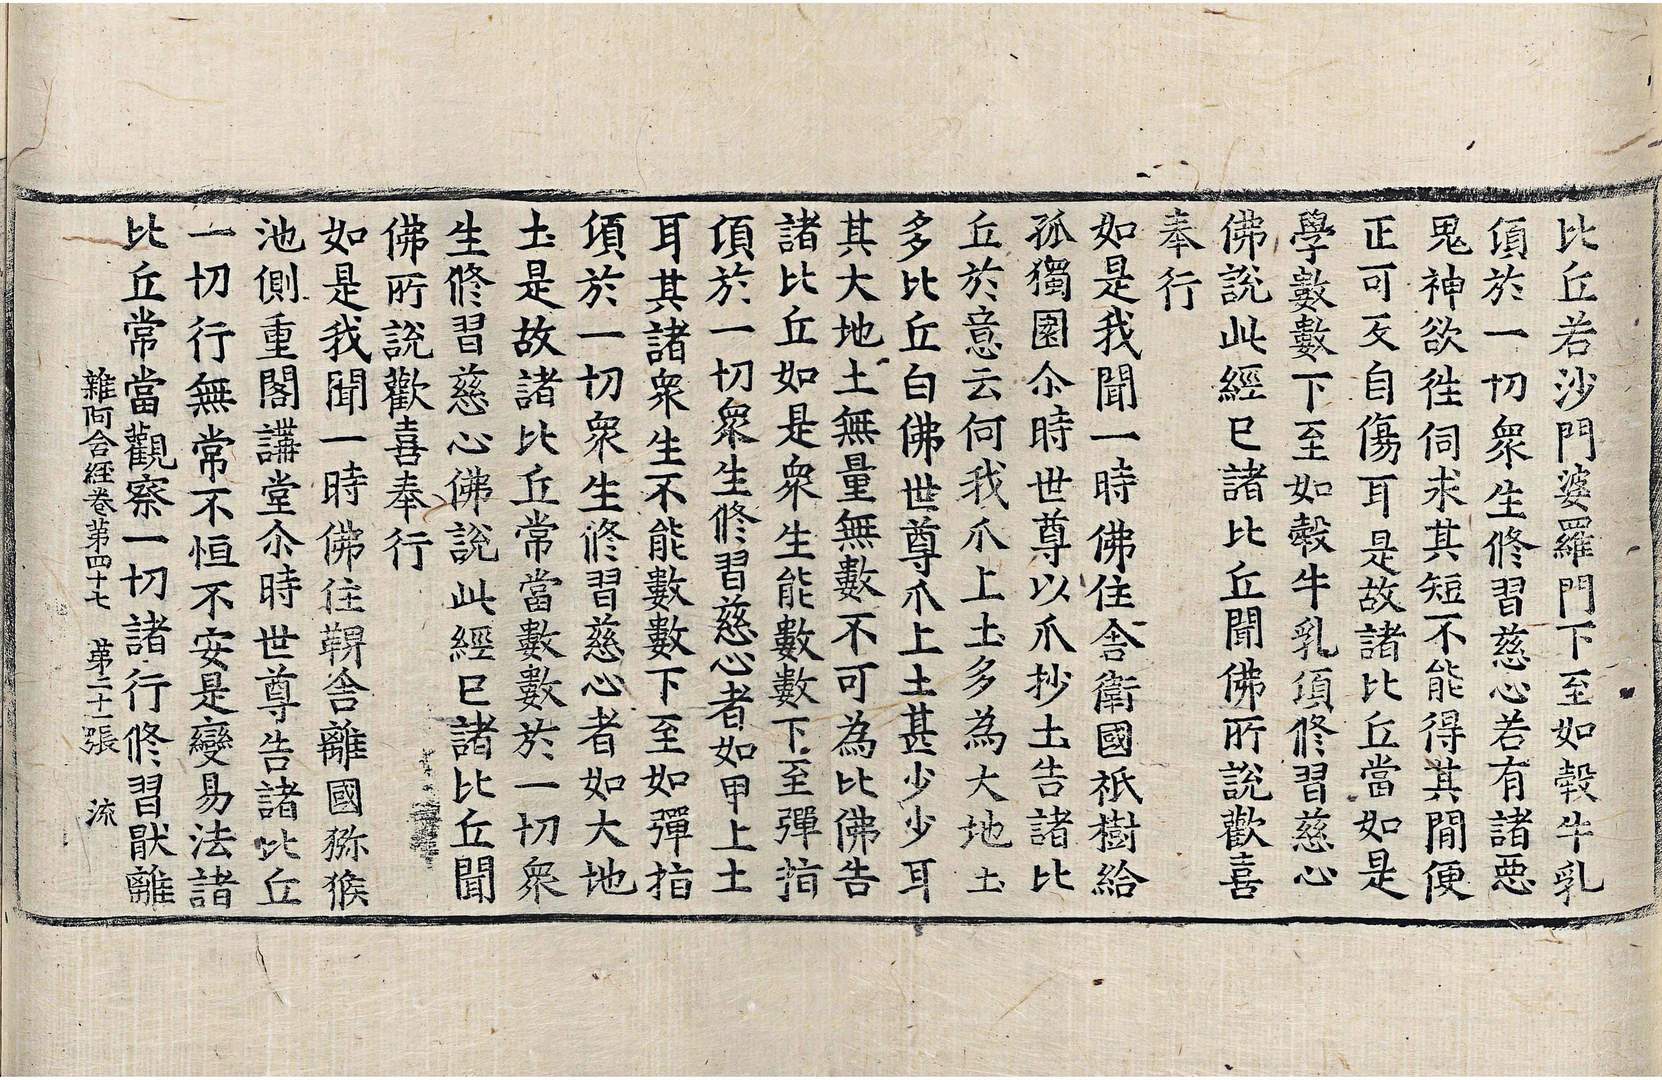 比丘若沙門婆羅門下至如𣫘牛乳
頃於一切衆生修習慈心若有諸惡
鬼神欲徃伺求其短不能得其閒便
正可反自傷耳是故諸比丘當如是
學數數下至如𣫘牛乳頃修習慈心
佛說此經已諸比丘聞佛所說歡喜
奉行
如是我聞一時佛住舍衛國祇樹給
孤獨園尒時世尊以爪抄土告諸比
丘於意云何我爪上土多為大地土
多比丘白佛世尊爪上土甚少少耳
其大地土無量無數不可為比佛告
諸比丘如是衆生能數數下至彈指
頃於一切衆生修習慈心者如甲上土
耳其諸衆生不能數數下至如彈指
頃於一切衆生修習慈心者如大地
土是故諸比丘常當數數於一切衆
生修習慈心佛說此經已諸比丘聞
佛所說歡喜奉行
如是我聞一時佛住鞞舍離國獼猴
池側重閣講堂尒時世尊告諸比丘
一切行無常不恒不安是變易法諸
比丘常當觀察一切諸行修習猒離
雜阿含經卷第四十七 第二十一張 流